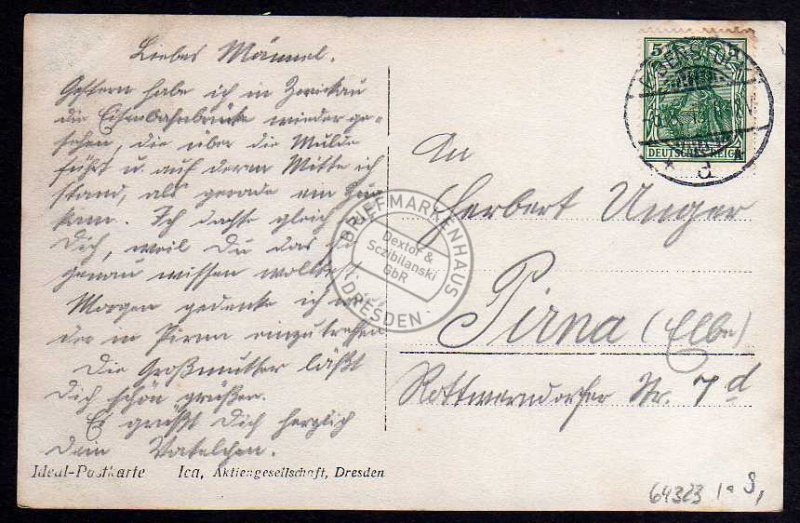 Liebes Männel.
Gestern habe ich in Zwickau
die Eisenbahnbrücke wiederge-
sehen, die über die Mulde
führt u. auf deren Mitte ich
stand, als gerade ein Zug
kam. Ich dachte gleich an
Dich, weil Du das so
genau wissen wolltest.
Morgen gedenke ich
in Pirna einzutreffen
Die Großmutter läßt
Dich schön grüßen.
Es grüßt Dich herzlich
Dein Vatelchen.
Ideal-Postkarte Ica, Aktiengesellschaft, Dresden
5
DEUTSCHES REICH
d
An
Herbert Unger
Pirna (Elbe)
Rottwerndorfer Str. 7 d
BRIEFMARKENHAUS
Dextor &
Sczibilanski
GbR
DRESDEN
64323